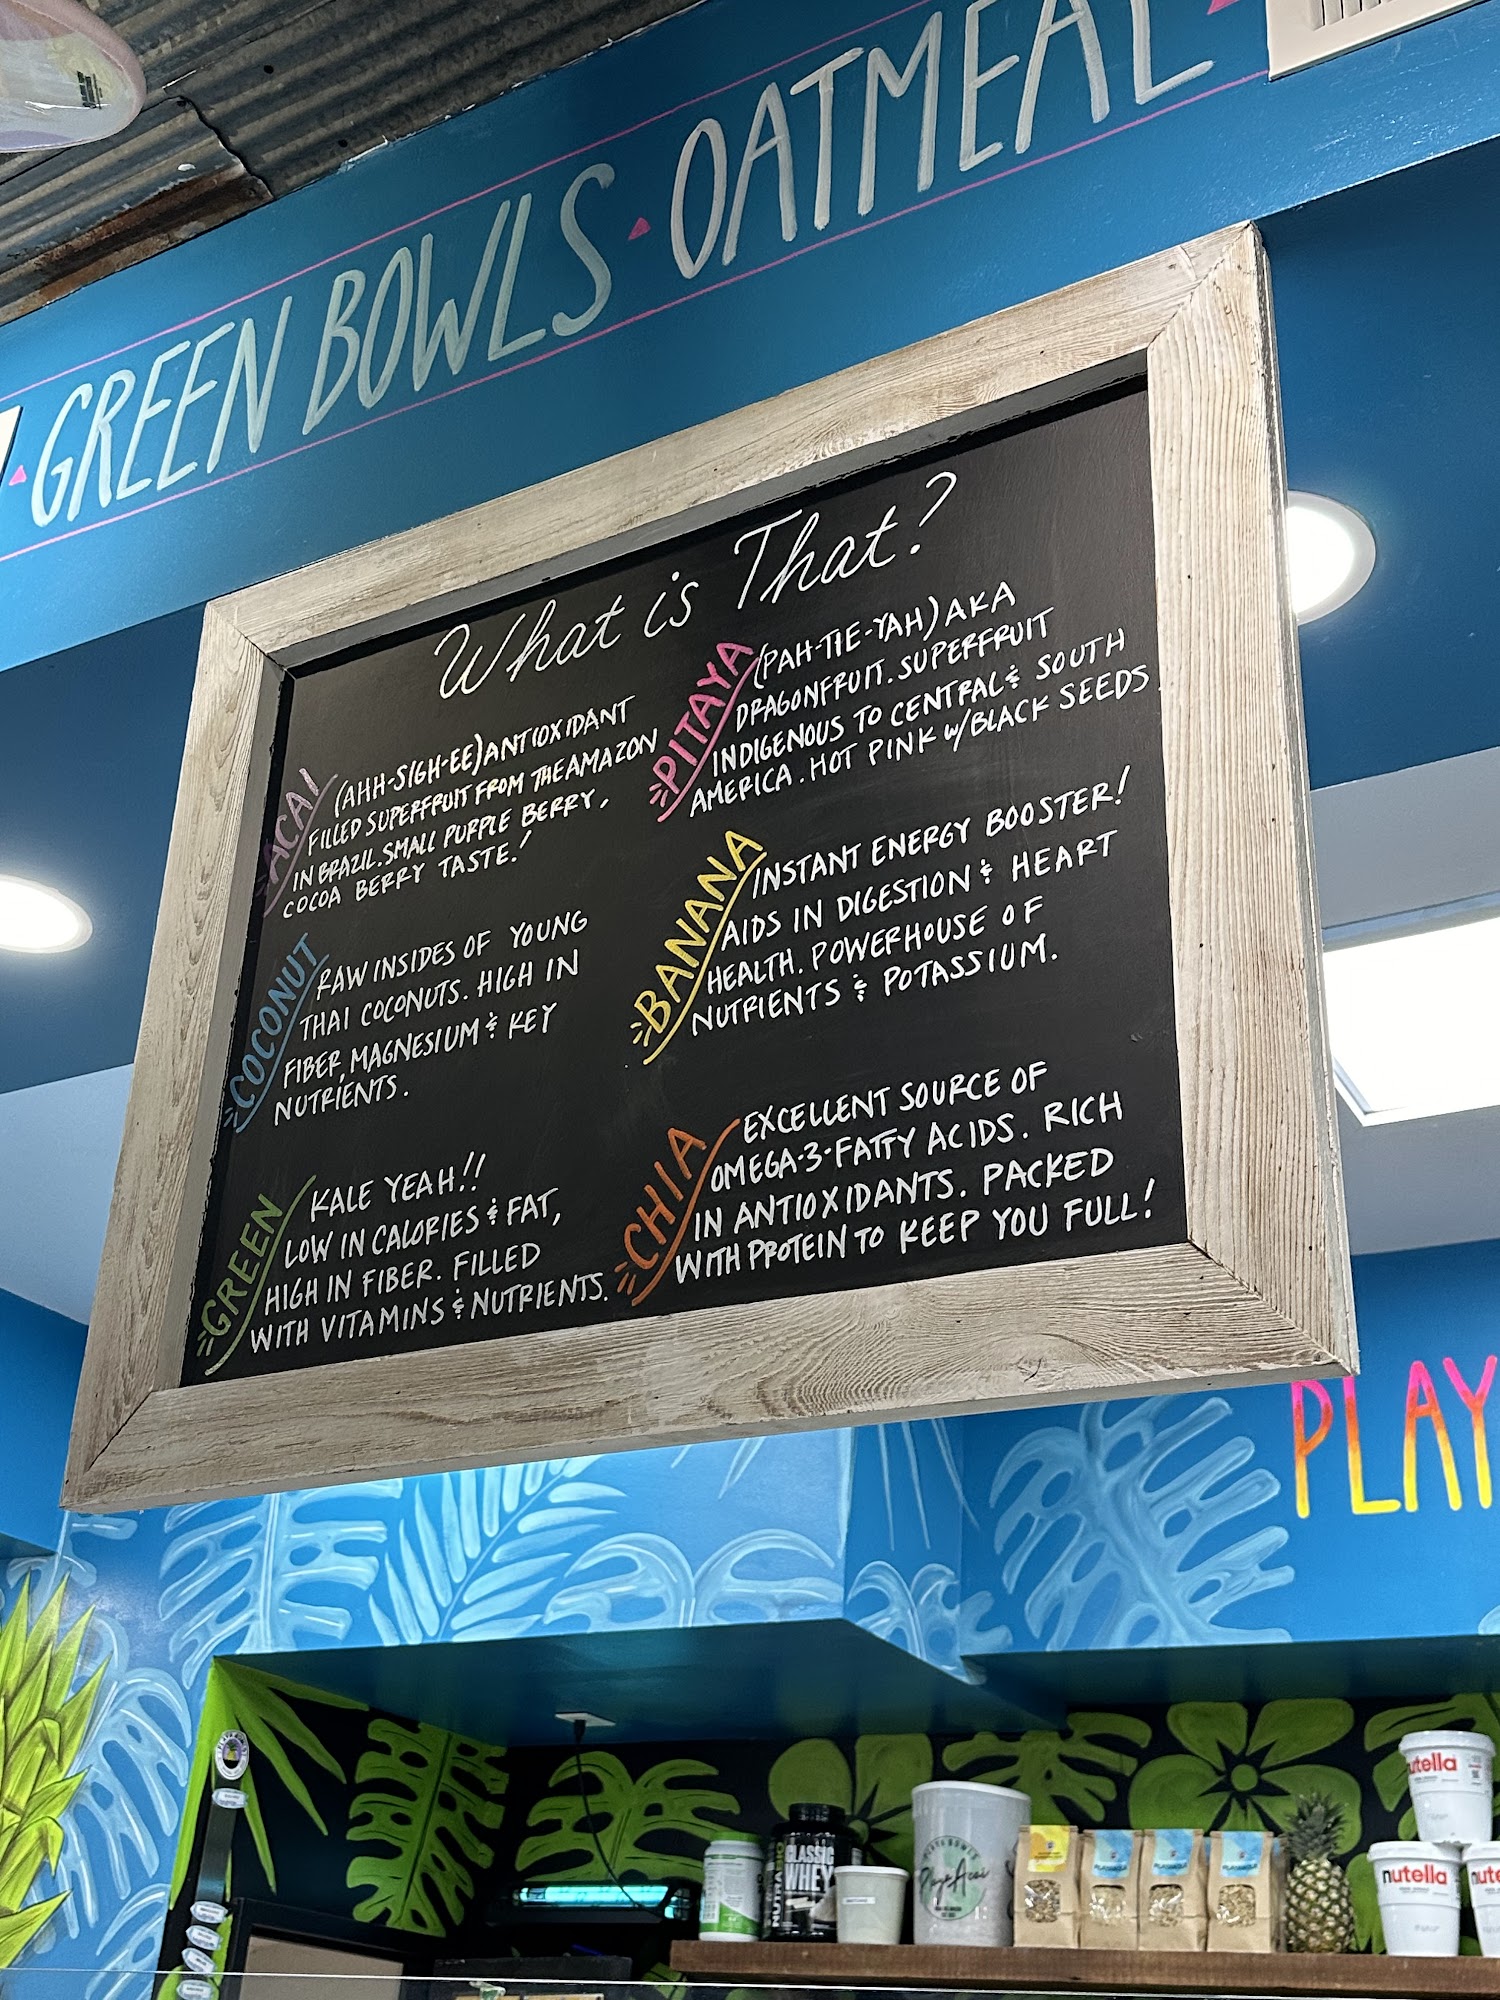 GREEN BOWLS · OATMEAL
What is That?
ACAI
(AHH-SIGH-EE) ANTIOXIDANT
FILLED SUPERFRUIT FROM THE AMAZON
IN BRAZIL. SMALL PURPLE BERRY,
COCOA BERRY TASTE!
COCONUT
RAW INSIDES OF YOUNG
THAI COCONUTS. HIGH IN
FIBER, MAGNESIUM & KEY
NUTRIENTS.
GREEN
KALE YEAH!!
LOW IN CALORIES & FAT,
HIGH IN FIBER. FILLED
WITH VITAMINS & NUTRIENTS.
PITAYA
(PAH-TIE-YAH) AKA
DRAGONFRUIT. SUPERFRUIT
INDIGENOUS TO CENTRAL & SOUTH
AMERICA. HOT PINK W/BLACK SEEDS
BANANA
INSTANT ENERGY BOOSTER!
AIDS IN DIGESTION & HEART
HEALTH. POWERHOUSE OF
NUTRIENTS & POTASSIUM.
CHIA
EXCELLENT SOURCE OF
OMEGA-3-FATTY ACIDS. RICH
IN ANTIOXIDANTS. PACKED
WITH PROTEIN TO KEEP YOU FULL!
PLAY
CLASSIC
WHEY
Playa Acai
nutella
nutella